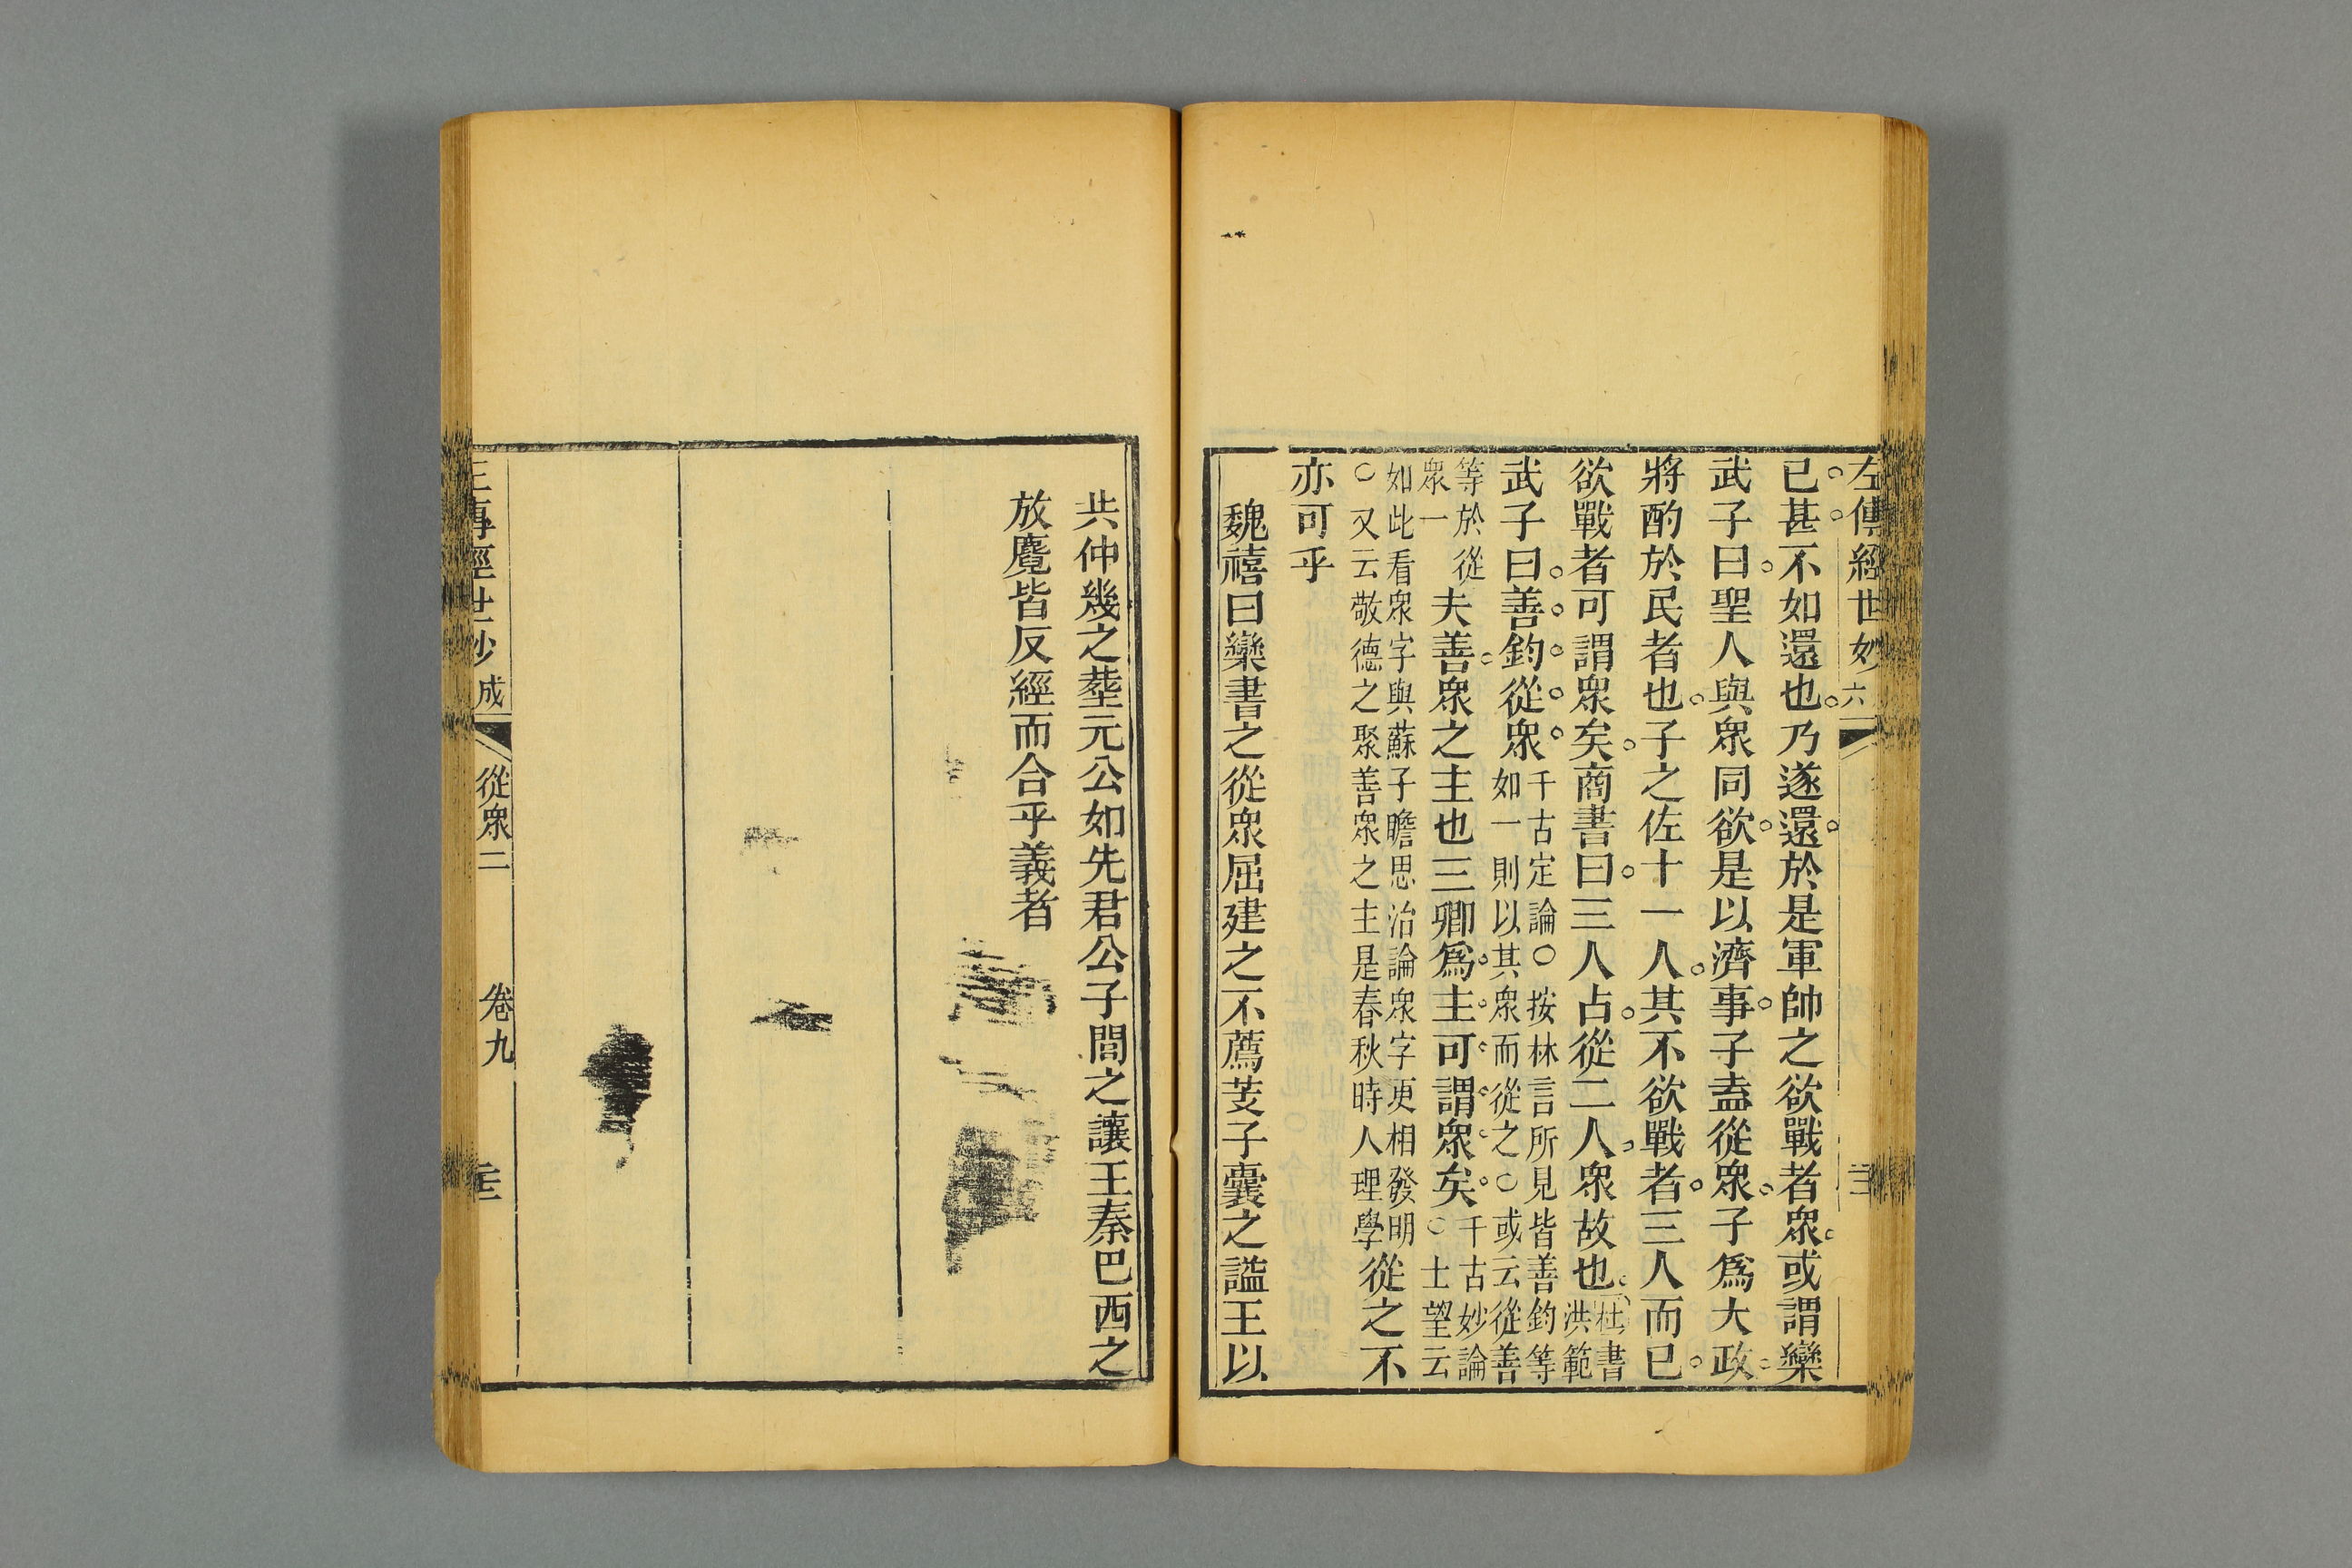 左傳經世妙 六
已甚不如還也乃遂還於是軍帥之欲戰者衆或謂欒
武子曰聖人與衆同欲是以濟事子盍從衆子爲大政
將酌於民者也子之佐十一人其不欲戰者三人而已
欲戰者可謂衆矣商書曰三人占從二人衆故也杜書洪範
武子曰善鈞從衆千古定論○按林言所見皆善鈞等如一則以其衆而從之○或云從善
等於從衆一夫善衆之主也三卿爲主可謂衆矣千古妙論○士望云
如此看衆字與蘇子瞻思治論衆字更相發明○又云敬德之聚善衆之主是春秋時人理學從之不
亦可乎
魏禧曰欒書之從衆屈建之不薦芰子囊之謚王以
共仲幾之塟元公如先君公子閭之讓王秦巴西之
放麑皆反經而合乎義者
成 從衆二 卷九